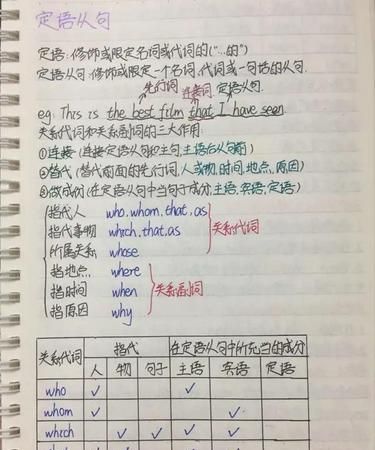 定语从句
定语:修饰或限定名词或代词的("...的")
定语从句:修饰或限定一个名词、代词或一句话的从句.
先行词 连接词 定语从句.
eg: This is the best film that I have seen.
关系代词和关系副词的三大作用:
①连接(连接定语从句和主句,主语后从句前)
②替代(替代前面的先行词,人或物,时间,地点,原因)
③做成份(在定语从句中当句子成分 主语,宾语,定语)
指代人 who. whom. that. as
指代事物 which. that. as 关系代词
所属关系 whose
指地点 where
指时间 when 关系副词
指原因 why
关系代词 指代 在定语从句中所充当的成分
人 物 句子 主语 宾语 定语
who ✓ ✓
whom ✓ ✓
which ✓ ✓ ✓ ✓